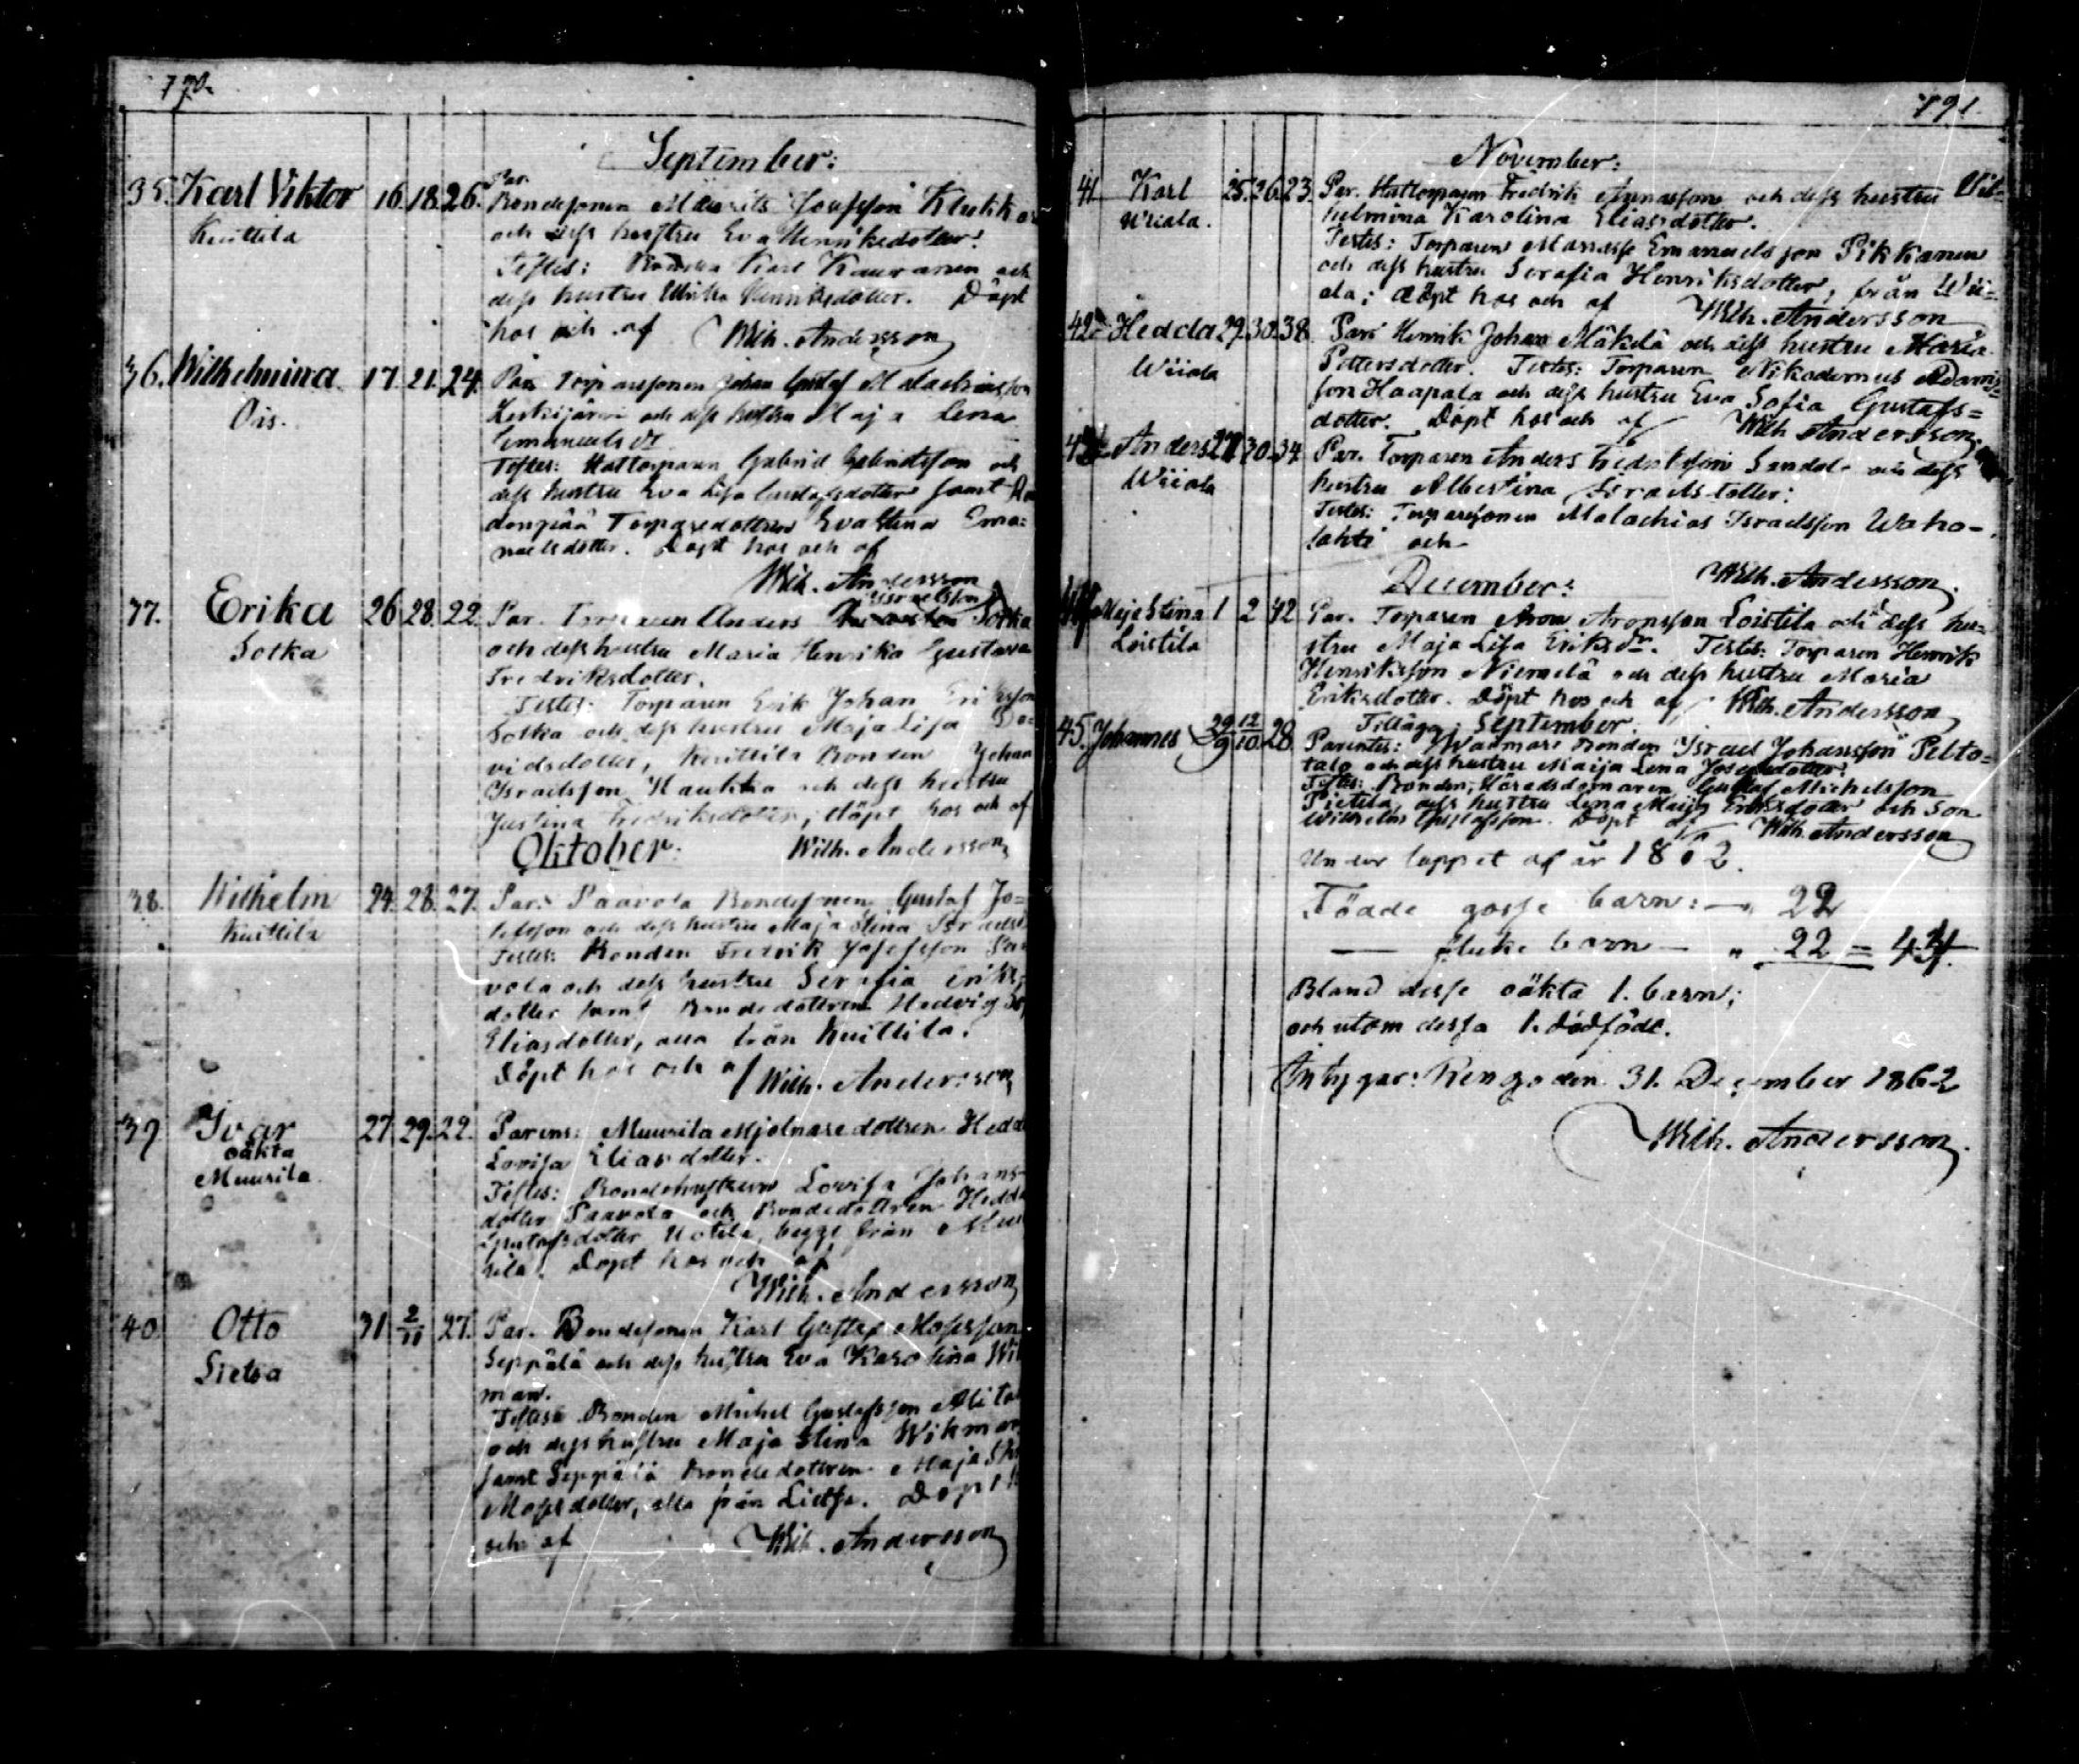 790.
September:
35. Karl Viktor 16. 18. 26. Par.
Kuittila Bondesonen Maurits Josefsson
och dess hustru Eva Henriksdotter.
Testes: Karl Kauranen och
dess hustru Ulrika Henriksdotter. Döpt
hos och af Wilh. Andersson
36. Wilhelmina 17. 21. 24. Par. Torparesonen Johan Gustaf Malachiasson
Ois. och dess hustru Maja Lena
Emanuels dr
Testes: Gabriel Gabrielsson och
dess hustru Eva Lisa Gustafsdotter samt
Torparedottren Eva Stina Ema=
nuelsdotter. Döpt hos och af
Wilh. Andersson
37. Erika 26 28. 22. Par. Torparen Anders Israelsson Sotka
Sotka och dess hustru Maria Henrika Gustava
Fredriksdotter.
Testes: Torparen Erik Johan Eriksson
Sotka och dess hustru Maja Lisa Da=
vidsdotter, Kuittila Bonden Johan
Israelsson Haukka och dess hustru
Justina Fredriksdotter; döpt hos och af
Oktober. Wilh. Andersson
38. Wilhelm 24. 28. 27. Par. Paavola Bondesonen Gustaf Jo=
Kuittila sefsson och dess hustru Maja Stina
Testes: Bonden Fredrik Josefsson Paa
vola och dess hustru Serafia Eriks=
dotter samt Bondedottren Hedvig
Eliasdotter, alla från Kuittila.
Döpt hos och af Wilh. Andersson
39 Ivar 27 29. 22. Parens: Muurila Mjölnaredottren Hedda
oäkta Lovisa Eliasdotter.
Muurila. Testes: Bondehustrun Lovisa Johans
dotter Paavola och Bondedottren Hedda
Gustafsdotter Uotila, begge från Muu
rila. Döpt hos och af
Wilh. Andersson
40. Otto 31 2/11 27. Par. Bondesonen Karl Gustaf Mosesson
Sietsa Seppälä och dess hustru Eva Karolina Wik
man.
Testes: Bonden Michel Gustafsson
och dess hustru Maja Stina Wikman
samt Seppälä Bondedottren Maja
Mosesdotter, alla från Lietsa. Döpt
och af Wilh. Andersson
791.
November:
41 Karl 25. 26. 23. Par. Fredrik och dess hustru Vil=
Wiiala. helmina Karolina Eliasdotter.
Testes: Torparen Manasse Emanuelsson Pikkanen
och dess hustru Serafia Henriksdotter, från Wii=
ala; döpt hos och af Wilh. Andersson
42. Hedda 29. 30. 38. Par. Henrik Johan Mäkelä och dess hustru Maria
Wiiala Pettersdotter. Testes: Torparen Nikodemus
son Haapala och dess hustru Eva Sofia Gustafs=
dotter. Döpt hos och af Wilh. Andersson
Anders 30. 34. Par. Torparen Anders Fredriksson Sandell och dess
Wiiala hustru Albertina Israelsdotter:
Testes: Torparesonen Malachias Israelsson Waho-
lahti och
December: Wilh. Andersson.
44 Maja Stina 1 2 42 Par. Torparen Aron Aronsson Loistila och dess hu=
Loistila stru Maja Lisa Eriksdr. Testes: Torparen Henrik
Henriksson Niemelä och dess hustru Maria
Eriksdotter. Döpt hos och af Wilh. Andersson
Tillägg: September.
45. Johannes 29/9 12/10 28 Parentes: Bonden Israel Johansson Pelto=
talo och dess hustru Maija Lena Josefsdotter.
Testes: Bonden, Häradsdomaren Gustaf Michelsson
Pietilä, dess hustru Lena Maija Eriksdotter och Son
Wilhelm Gustafsson. Döpt af Wilh. Andersson
Under loppet af år 1862.
Födde gosse barn: — „ 22
— flicke barn — „ 22 = 44.
Bland desse oäkta 1. barn;
och utom dessa 1. dödfödt.
Intygar: Kengo den 31. December 1862
Wilh. Andersson.